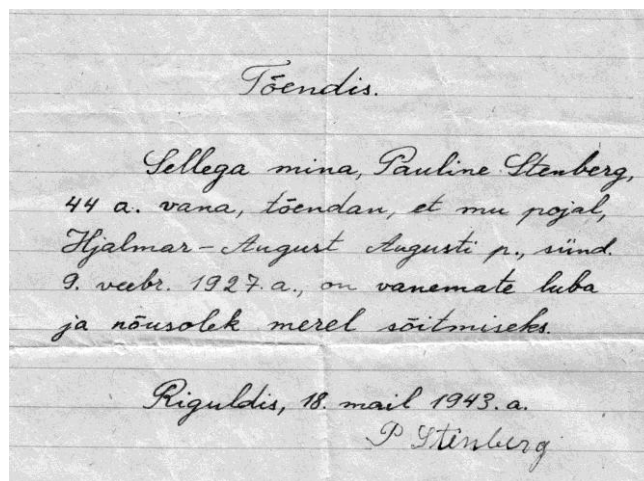 Tõendis.
Sellega mina, Pauline Stenberg,
44 a. vana, tõendan, et mu pojal,
Hjalmar-August Augusti p., sünd.
9. veebr. 1927. a., on vanemate luba
ja nõusolek merel sõitmiseks.
Riguldis, 18. mail 1943. a.
P Stenberg